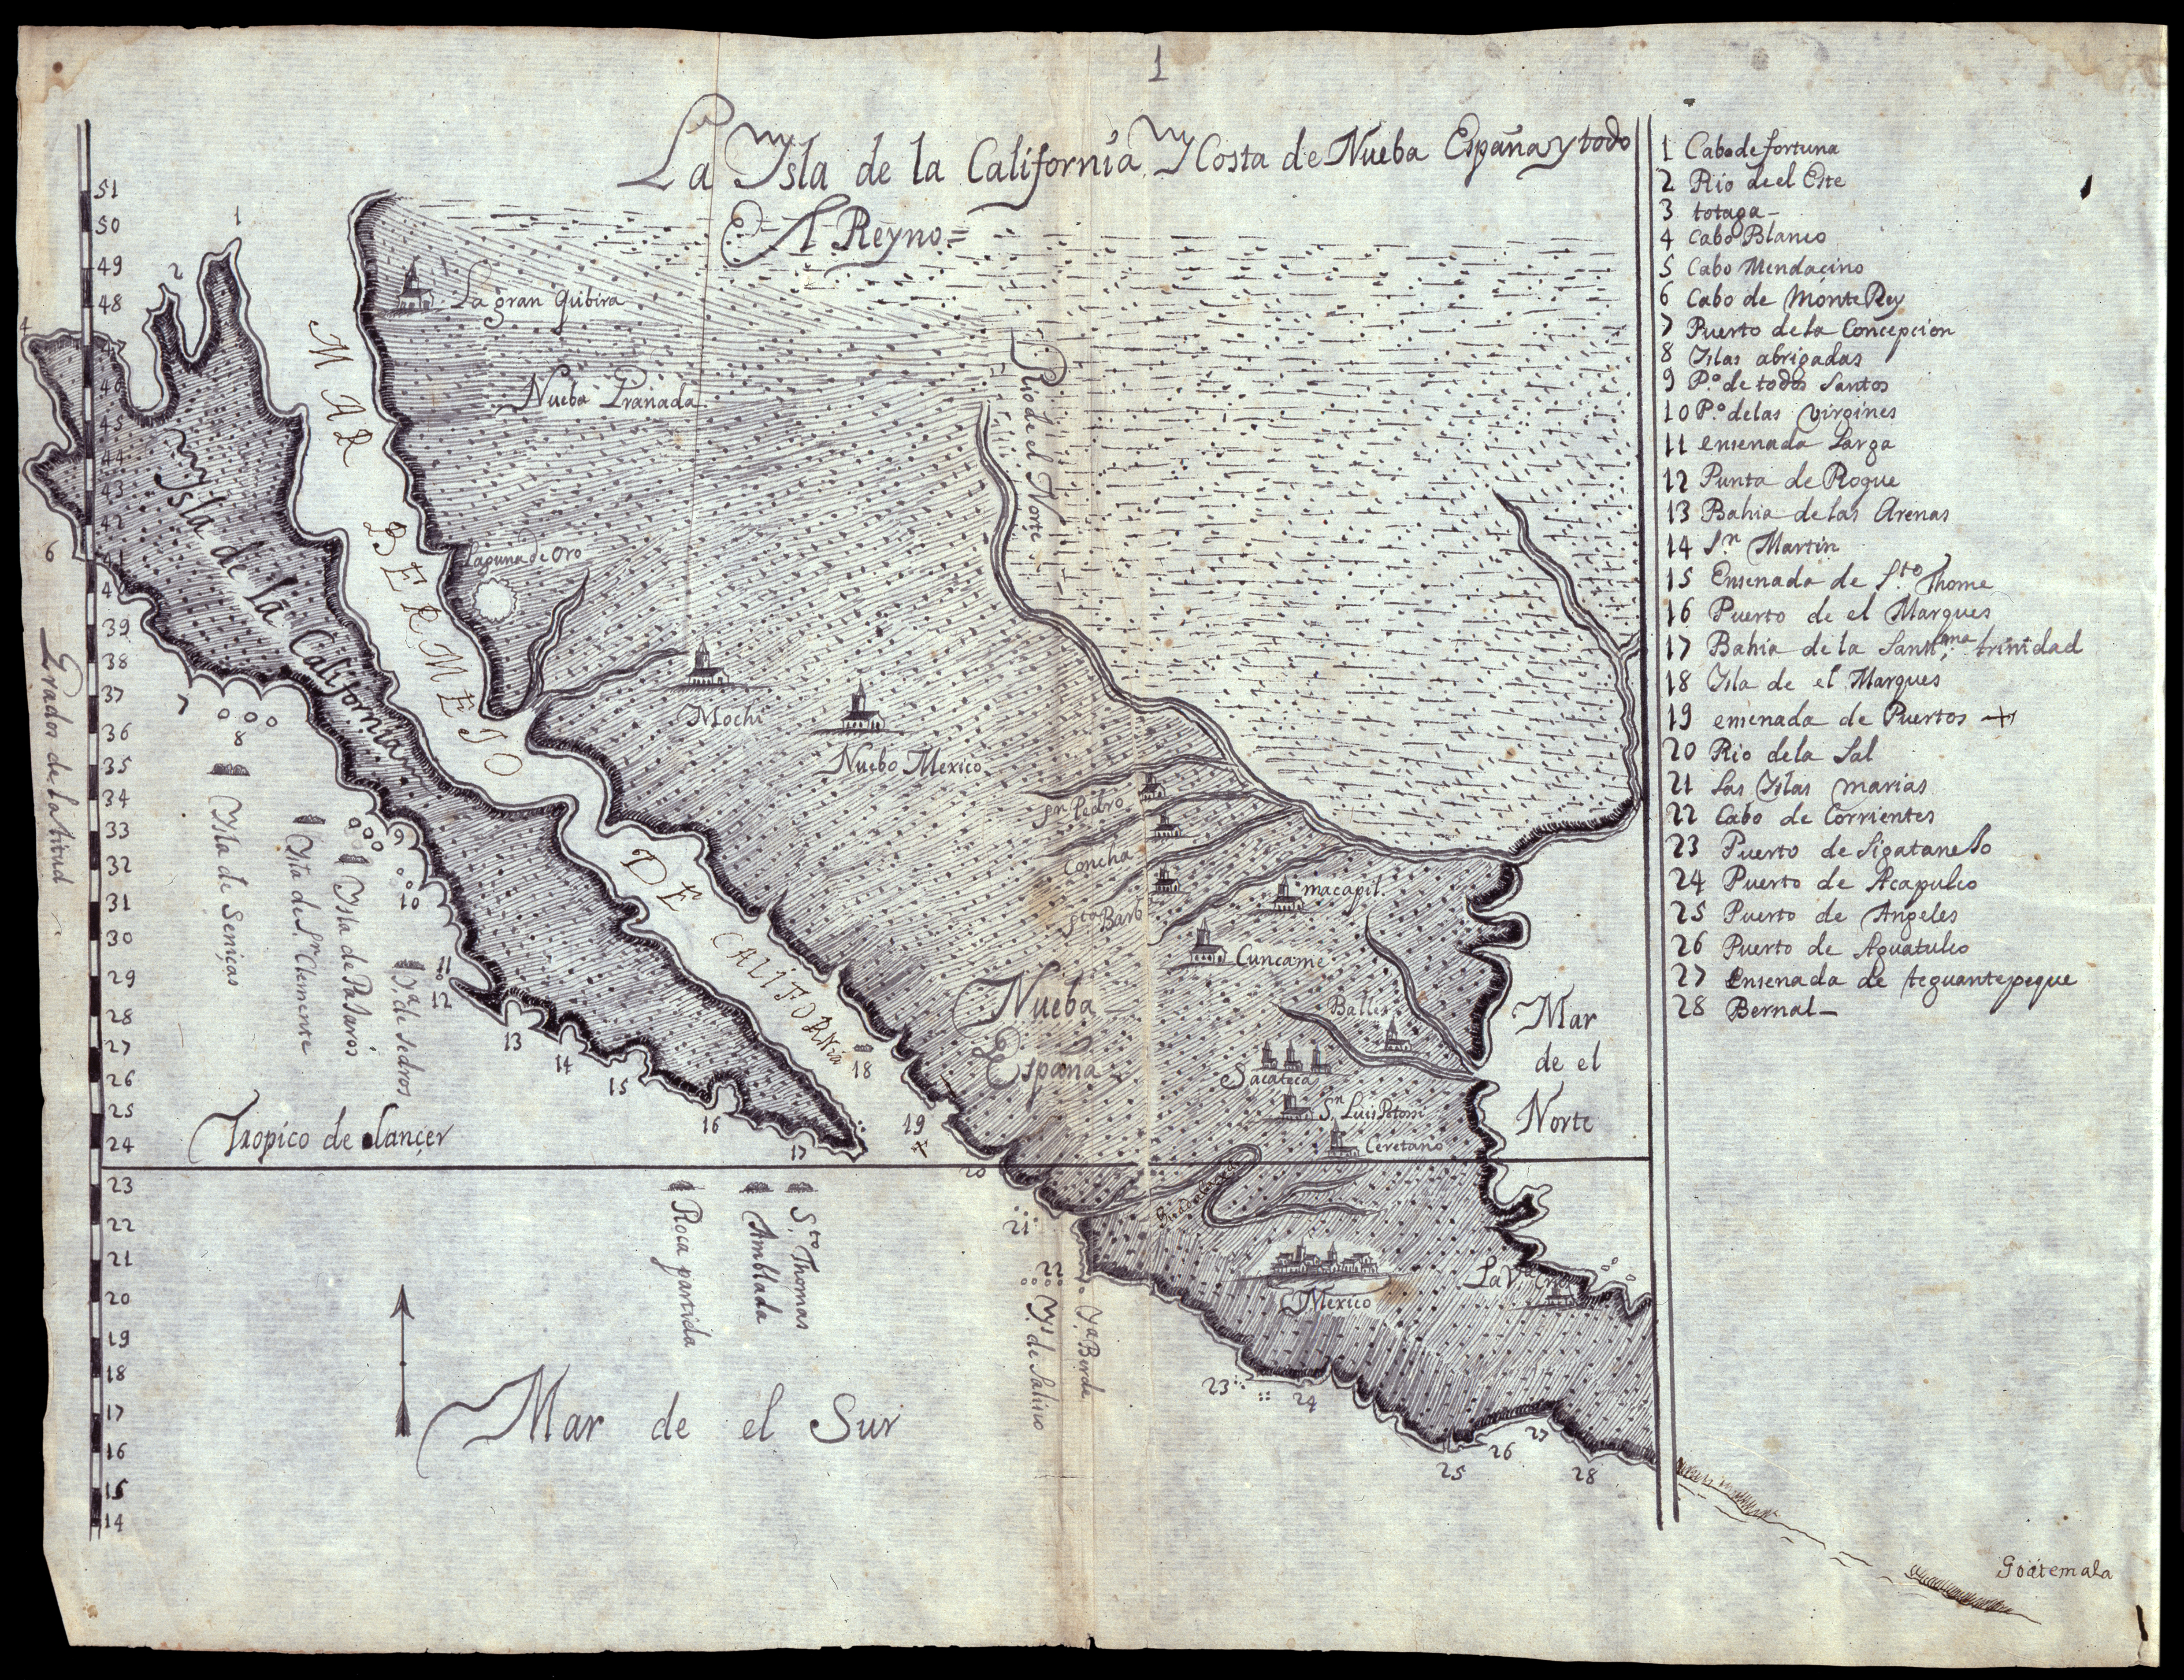 1
La Ysla de la California, Y Costa de Nueba España y todo
El Reyno=
51
50
49
48
47
46
45
44
43
42
41
40
39
38
37
36
35
34
33
32
31
30
29
28
27
26
25
24
23
22
21
20
19
18
17
16
15
14
Grados de latitud
1
2
4
6
7
8
9
10
11
12
13
14
15
16
17
18
19
20
21
22
23
24
25
26
27
28
MAR BERMEJO DE CALIFORNia
Ysla de la California
La gran Quibira
Nueba Granada
Rio de el Norte
Laguna de Oro
Mochi
Nuebo Mexico
Sn Pedro
Concha
Sta Barb
macapil.
Cuncame
Nueba
España
Balles
Sacateca
Sn Luis Potosi
Ceretano
Mexico
La Va Cruz
Mar
de el
Norte
Ysla de Seniças
Ysla de Sn Clemente
Ysla de Paxaros
Ya de sedros
Tropico de Cançer
Roca partida
Amblada
Sto Thomas
Ys de Salino
Ya Berde
Mar de el Sur
1 Cabo de fortuna
2 Rio de el Este
3 totaga-
4 Cabo Blanco
5 Cabo Mendaçino
6 Cabo de MonteRey
7 Puerto de la Concepcion
8 Yslas abrigadas
9 Po de todos Santos
10 Po de las virgines
11 ensenada Larga
12 Punta de Roque
13 Bahia de las Arenas
14 Sn Martin
15 Ensenada de Sto Thome
16 Puerto de el Marques
17 Bahia de la Santma trinidad
18 Ysla de el Marques
19 ensenada de Puertos +
20 Rio de la Sal
21 Las Yslas marias
22 Cabo de Corrientes
23 Puerto de Sigatanejo
24 Puerto de Acapulco
25 Puerto de Angeles
26 Puerto de Aguatulco
27 Ensenada de teguantepeque
28 Bernal-
Goatemala